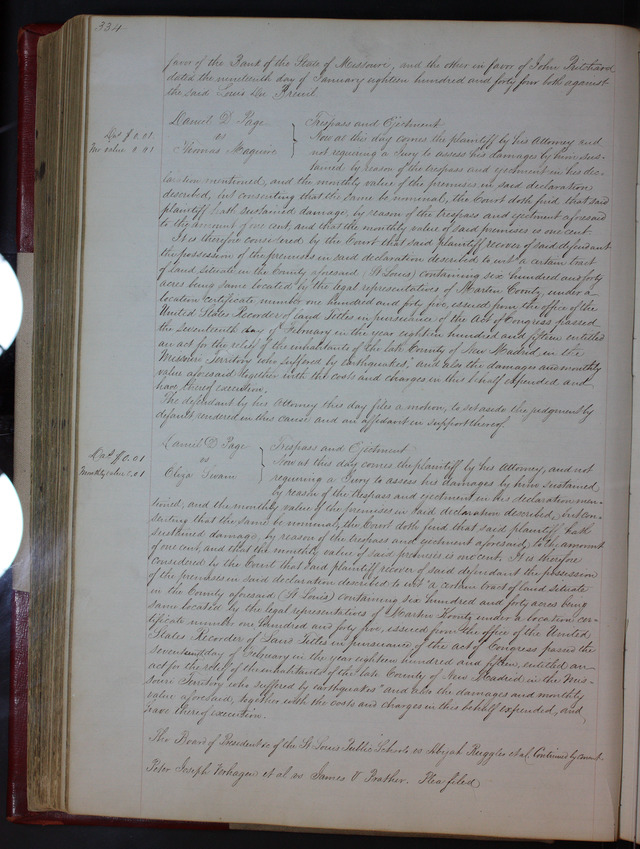 334
favor of the Bank of the State of Missouri, and the other in favor of John Pritchard
dated the nineteenth day of January eighteen hundred and forty four both against
the said Louis Du Breuil
Daniel D. Page
vs
Thomas Maguire
Trespass and Ejectment
Das $0.01.
Mo value 0.01
Now at this day comes the plaintiff by his Attorney and
not requiring a Jury to assess his damages by him sus-
tained by reason of the trespass and ejectment in his dec-
laration mentioned, and the monthly value of the premises in said declaration
described, but consenting that the same be nominal, the Court doth find that said
plaintiff hath sustained damage, by reason of the trespass and ejectment aforesaid
to the amount of one cent, and that the monthly value of said premises is one cent.
It is therefore considered by the Court that said plaintiff recover of said defendant
the possession of the premises in said declaration described to wit "a certain tract
of land situate in the County aforesaid (St Louis) containing six hundred and forty
acres being same located by the legal representatives of Martin Coonty under a
location certificate number one hundred and forty five, issued from the office of the
United States Recorder of land Titles in pursuance of the Act of Congress passed
the seventeenth day of February in the year eighteen hundred and fifteen entitled
an act for the relief of the inhabitants of the late County of New Madrid in the
Missouri Territory who suffered by earthquakes," and also the damages and monthly
value aforesaid together with the costs and charges in this behalf expended and
have thereof execution.
The defendant by his Attorney this day files a motion, to set aside the judgment by
default rendered in this cause and an affidavit in support thereof
Daniel D Page
vs
Eliza Swain
Trespass and Ejectment
Das $0.01
Monthly value 0.01
Now at this day comes the plaintiff by his Attorney, and not
requiring a Jury to assess his damages by him sustained,
by reason of the trespass and ejectment in his declaration men-
tioned, and the monthly value of the premises in said declaration described, but con-
senting that the same be nominal, the Court doth find that said plaintiff hath
sustained damage, by reason of the trespass and ejectment aforesaid, to the amount
of one cent, and that the monthly value of said premises is one cent. It is therefore
considered by the Court that said plaintiff recover of said defendant the possession
of the premises in said declaration described to wit "a certain tract of land situate
in the County aforesaid (St Louis) containing six hundred and forty acres being
same located by the legal representatives of Martin Koonty under a location cer-
tificate number one hundred and forty five, issued from the office of the United
States Recorder of Land Titles in pursuance of the act of Congress passed the
seventeenth day of February in the year eighteen hundred and fifteen, entitled an
act for the relief of the inhabitants of the late County of New Madrid in the Mis-
souri Territory who suffered by earthquakes" and also the damages and monthly
value aforesaid, together with the costs and charges in this behalf expended, and
have thereof execution.
The Board of President &c of the St Louis Public Schools vs Abijah Ruggles et al. Continued by consent.
Peter Joseph Verhagen et al vs James V. Prather. Plea filed